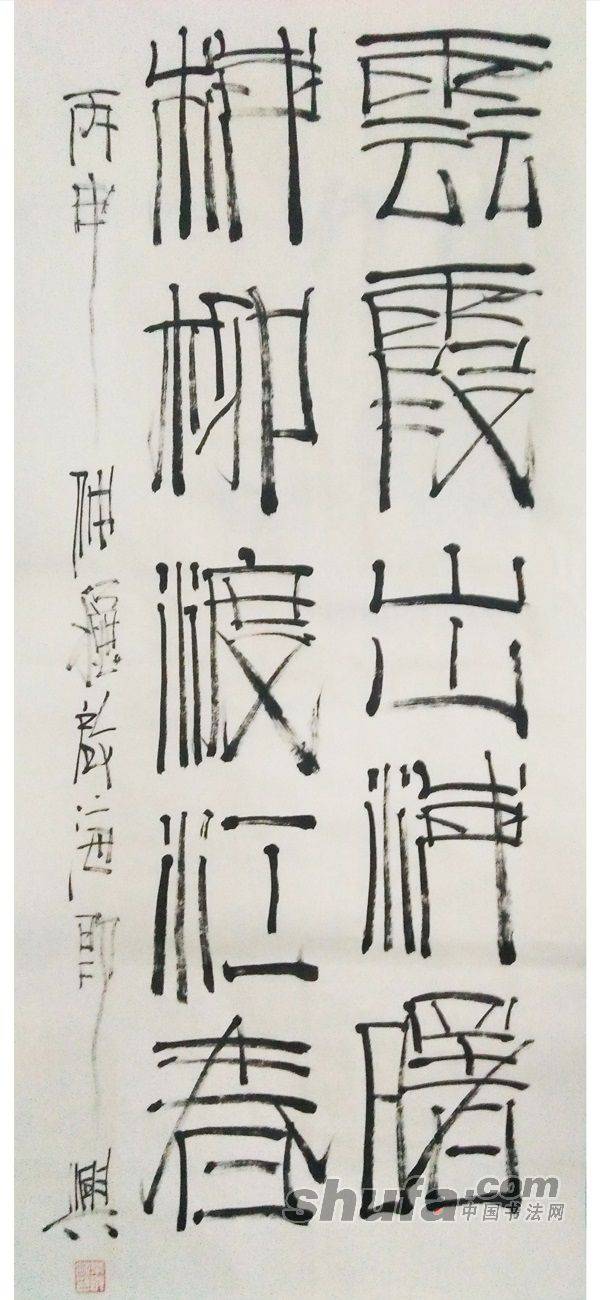 雲霞出海曙
梅柳渡江春
丙申 海即興
shufa.com
中国书法网